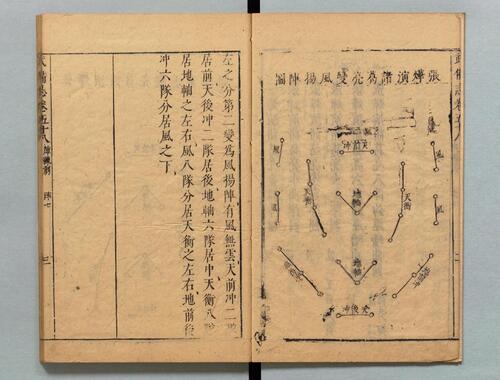 張燁演諸葛亮變風揚陣圖
武備志卷五十八
風
天前冲
風
風
天衡
地軸
天衡
風
地軸
天後冲
左之分第二變為風揚陣有風無雲天前冲二隊
居前天後冲二隊居後地軸六隊居中天衡八隊
居地軸之左右風八隊分居天衡之左右地前後
冲六隊分居風之下
武備志卷五十八
陣練制
三